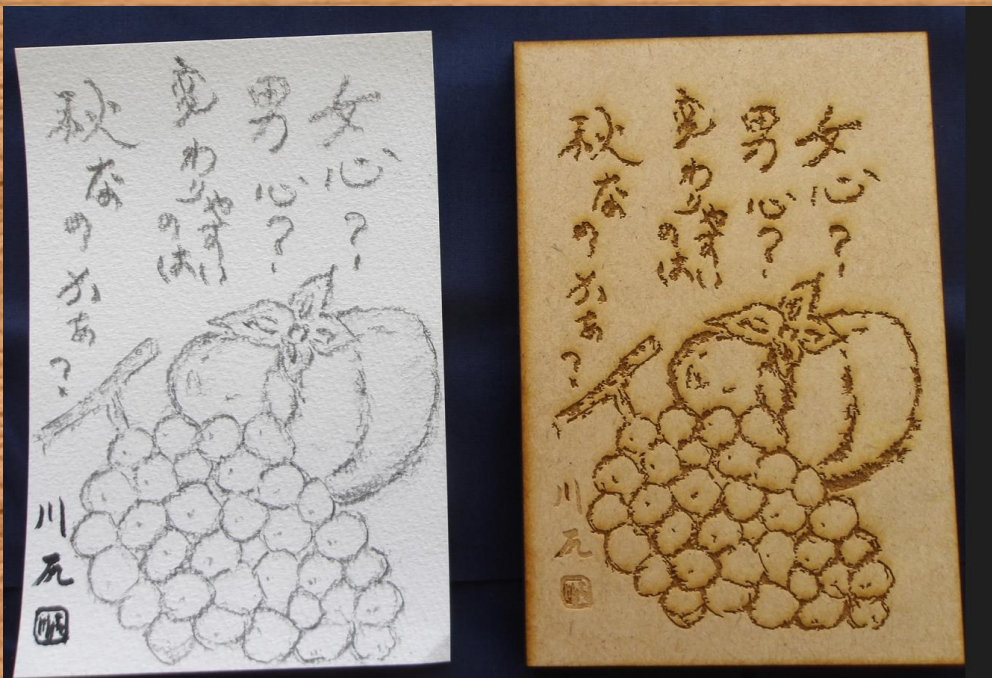 女心？
男心？
変わり
やすい
のは
秋なのかあ？
川
女心？
男心？
変わり
やすい
のは
秋なのかあ？
川